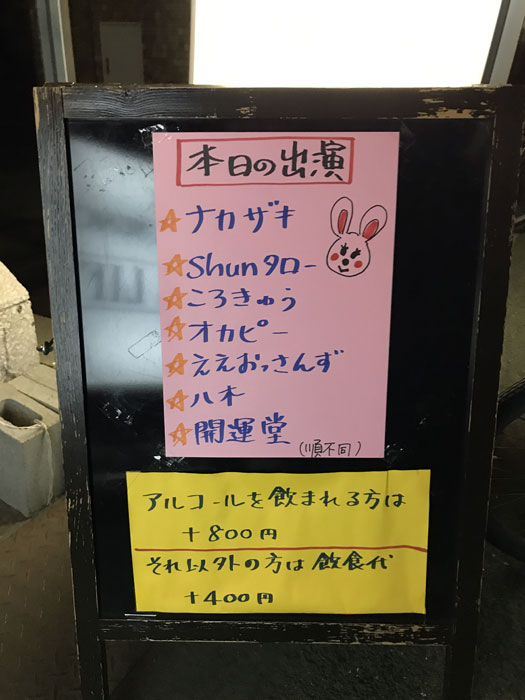 本日の出演
☆ナカザキ
☆Shunタロー
☆ころきゅう
☆オカピー
☆ええおっさんず
☆八木
☆開運堂
(順不同)
アルコールを飲まれる方は
+800円
それ以外の方は飲食代
+400円